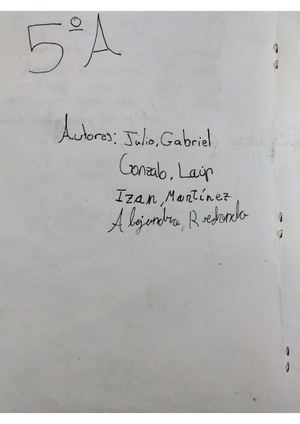 5º A
Autores: Julio, Gabriel
Gonzalo,
Izan, Martínez
Alejandro, Redondo